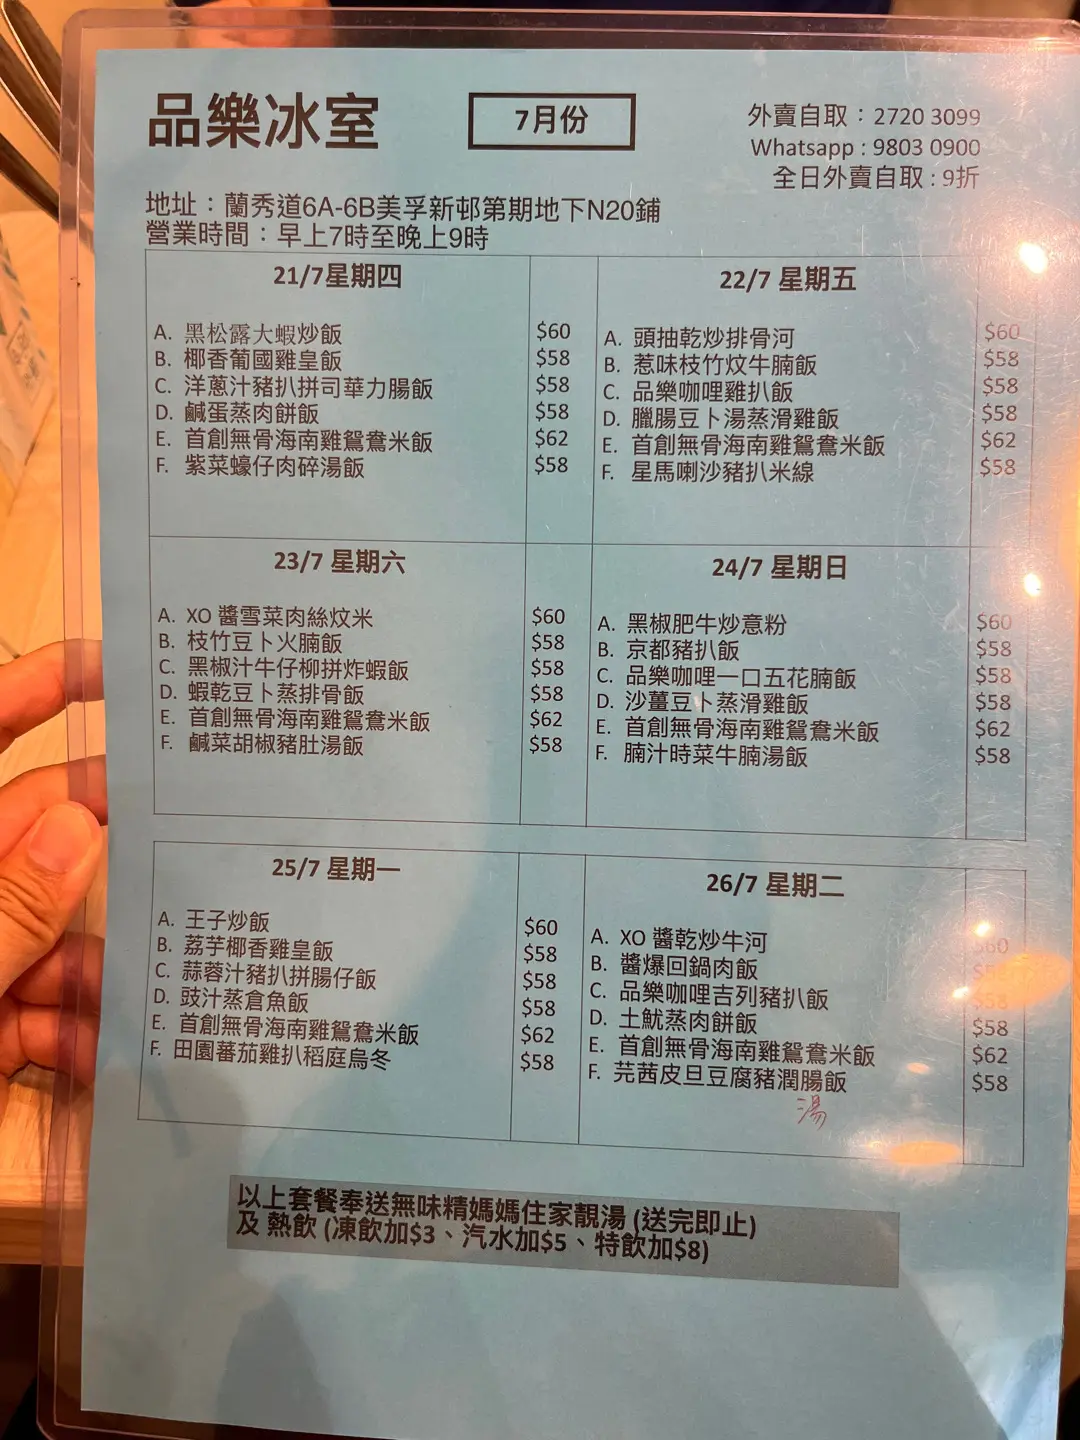 品樂冰室
7月份
外賣自取：2720 3099
Whatsapp : 9803 0900
全日外賣自取 : 9折
地址：蘭秀道6A-6B美孚新邨第期地下N20鋪
營業時間：早上7時至晚上9時
21/7星期四
A. 黑松露大蝦炒飯 $60
B. 椰香葡國雞皇飯 $58
C. 洋蔥汁豬扒拼司華力腸飯 $58
D. 鹹蛋蒸肉餅飯 $58
E. 首創無骨海南雞鴛鴦米飯 $62
F. 紫菜蠔仔肉碎湯飯 $58
22/7 星期五
A. 頭抽乾炒排骨河 $60
B. 惹味枝竹炆牛腩飯 $58
C. 品樂咖哩雞扒飯 $58
D. 臘腸豆卜湯蒸滑雞飯 $58
E. 首創無骨海南雞鴛鴦米飯 $62
F. 星馬喇沙豬扒米線 $58
23/7 星期六
A. XO 醬雪菜肉絲炆米 $60
B. 枝竹豆卜火腩飯 $58
C. 黑椒汁牛仔柳拼炸蝦飯 $58
D. 蝦乾豆卜蒸排骨飯 $58
E. 首創無骨海南雞鴛鴦米飯 $62
F. 鹹菜胡椒豬肚湯飯 $58
24/7 星期日
A. 黑椒肥牛炒意粉 $60
B. 京都豬扒飯 $58
C. 品樂咖哩一口五花腩飯 $58
D. 沙薑豆卜蒸滑雞飯 $58
E. 首創無骨海南雞鴛鴦米飯 $62
F. 腩汁時菜牛腩湯飯 $58
25/7 星期一
A. 王子炒飯 $60
B. 荔芋椰香雞皇飯 $58
C. 蒜蓉汁豬扒拼腸仔飯 $58
D. 豉汁蒸倉魚飯 $58
E. 首創無骨海南雞鴛鴦米飯 $62
F. 田園蕃茄雞扒稻庭烏冬 $58
26/7 星期二
A. XO 醬乾炒牛河 $60
B. 醬爆回鍋肉飯
C. 品樂咖哩吉列豬扒飯 $58
D. 土魷蒸肉餅飯 $58
E. 首創無骨海南雞鴛鴦米飯 $62
F. 芫茜皮旦豆腐豬潤腸飯 $58
湯
以上套餐奉送無味精媽媽住家靚湯 (送完即止)
及 熱飲 (凍飲加$3、汽水加$5、特飲加$8)